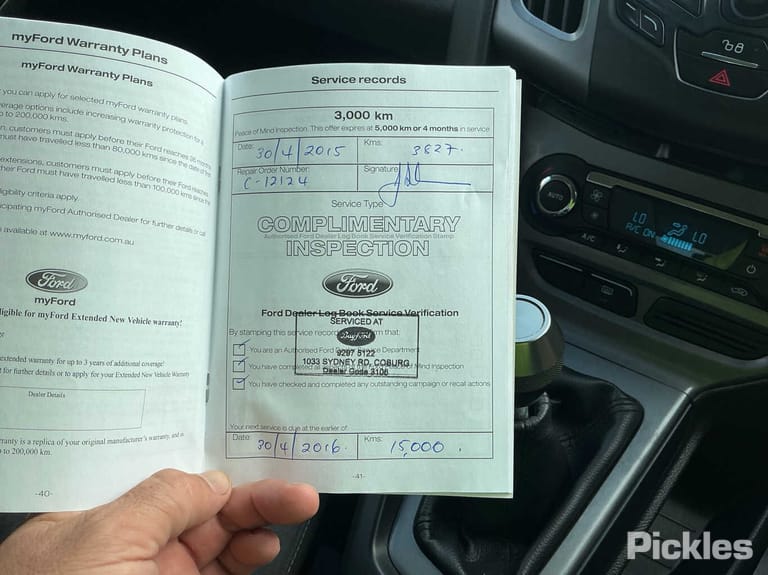 myFord Warranty Plans
myFord Warranty Plans
you can apply for selected myFord warranty plans.
erage options include increasing warranty protection for a
to 200,000 kms.
n, customers must apply before their Ford reaches 36 months
must have travelled less than 80,000 kms since the date of
extensions, customers must apply before their Ford reaches
their Ford must have travelled less than 100,000 kms since the
igibility criteria apply.
icipating myFord Authorised Dealer for further details or call
available at www.myford.com.au
Ford
myFord
ligible for myFord Extended New Vehicle warranty!
extended warranty for up to 3 years of additional coverage!
t for further details or to apply for your Extended New Vehicle Warranty
Dealer Details
rranty is a replica of your original manufacturer's warranty, and is
to 200,000 km.
-40-
Service records
3,000 km
Peace of Mind Inspection. This offer expires at 5,000 km or 4 months in service
Date: 30/4/2015 Kms: 3827.
Repair Order Number: C-12124 Signature
Service Type
COMPLIMENTARY
Authorised Ford Dealer Log Book Service Verification Stamp
INSPECTION
Ford
Ford Dealer Log Book Service Verification
SERVICED AT
Bayford
9297 5122
1033 SYDNEY RD, COBURG
Dealer Code 3106
By stamping this service record that:
You are an Authorised Ford Service Department
You have completed of Mind Inspection
You have checked and completed any outstanding campaign or recall actions
Your next service is due at the earlier of:
Date: 30/4/2016. Kms: 15,000.
-41-
AUTO
A/C
LO LO
A/C ON
Pickles